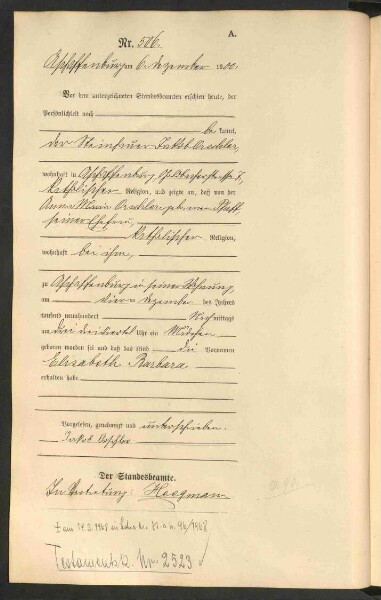 A.
Nr. 506.
Aschaffenburg am 6. Dezember 1900.
Vor dem unterzeichneten Standesbeamten erschien heute, der
Persönlichkeit nach
be kannt,
der Steinhauer Jakob
wohnhaft in Aschaffenburg,
katholischer Religion, und zeigte an, daß von der
Anna Maria geborene
seiner Ehefrau,
katholischer Religion,
wohnhaft bei ihm,
zu Aschaffenburg in seiner Wohnung,
am vier Dezember des Jahres
tausend neunhundert Nachmittags
um drei dreiviertel Uhr ein Mädchen
geboren worden sei und daß das Kind die Vornamen
Elisabeth Barbara
erhalten habe.
Vorgelesen, genehmigt und unterschrieben.
Jakob
Der Standesbeamte.
In Vertretung: Heegmann
† am 14.3.1968 in 96/1968
Testamentsk. Nr. 2523